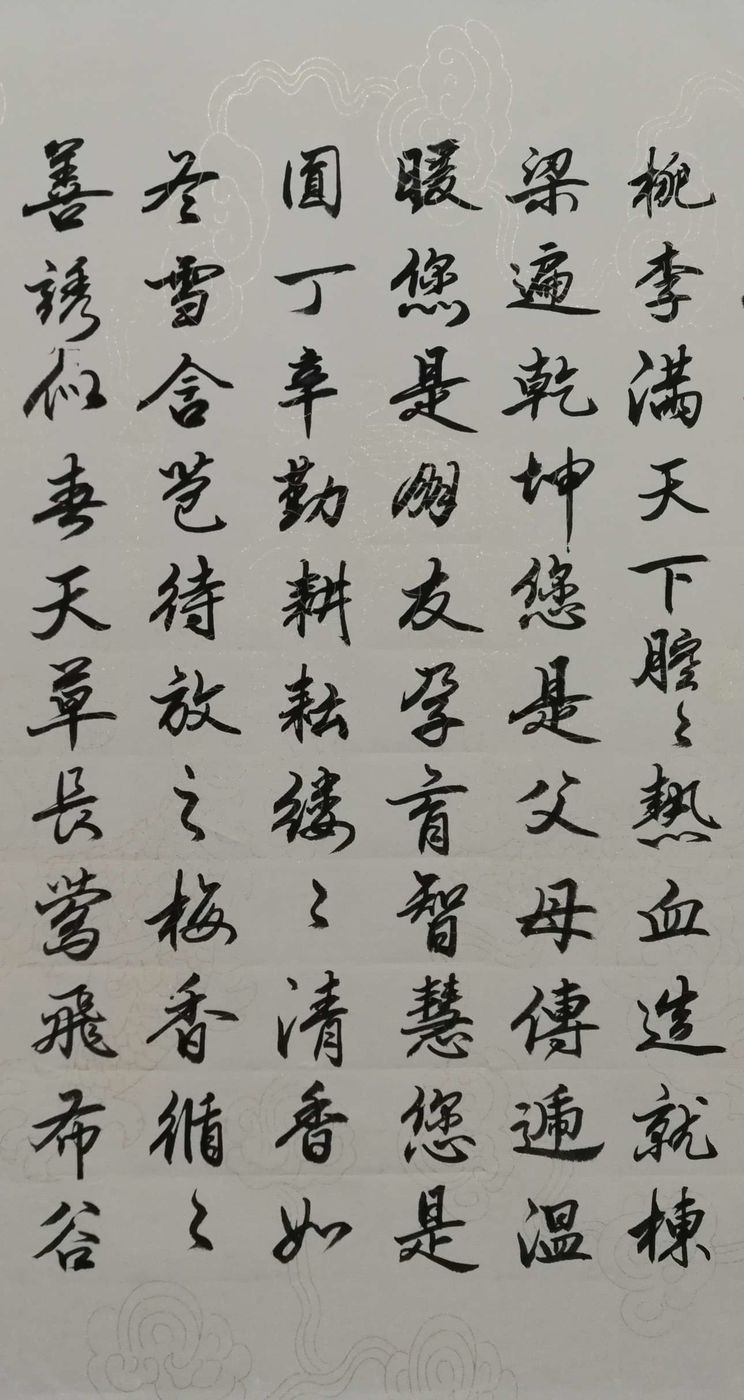 桃李满天下腔〻熱血造就棟
梁遍乾坤您是父母傳遞温
暖您是朋友孕育智慧您是
圓丁辛勤耕耘缕〻清香如
冬雪含苞待放之梅香循〻
善誘似春天草長鶯飛布谷